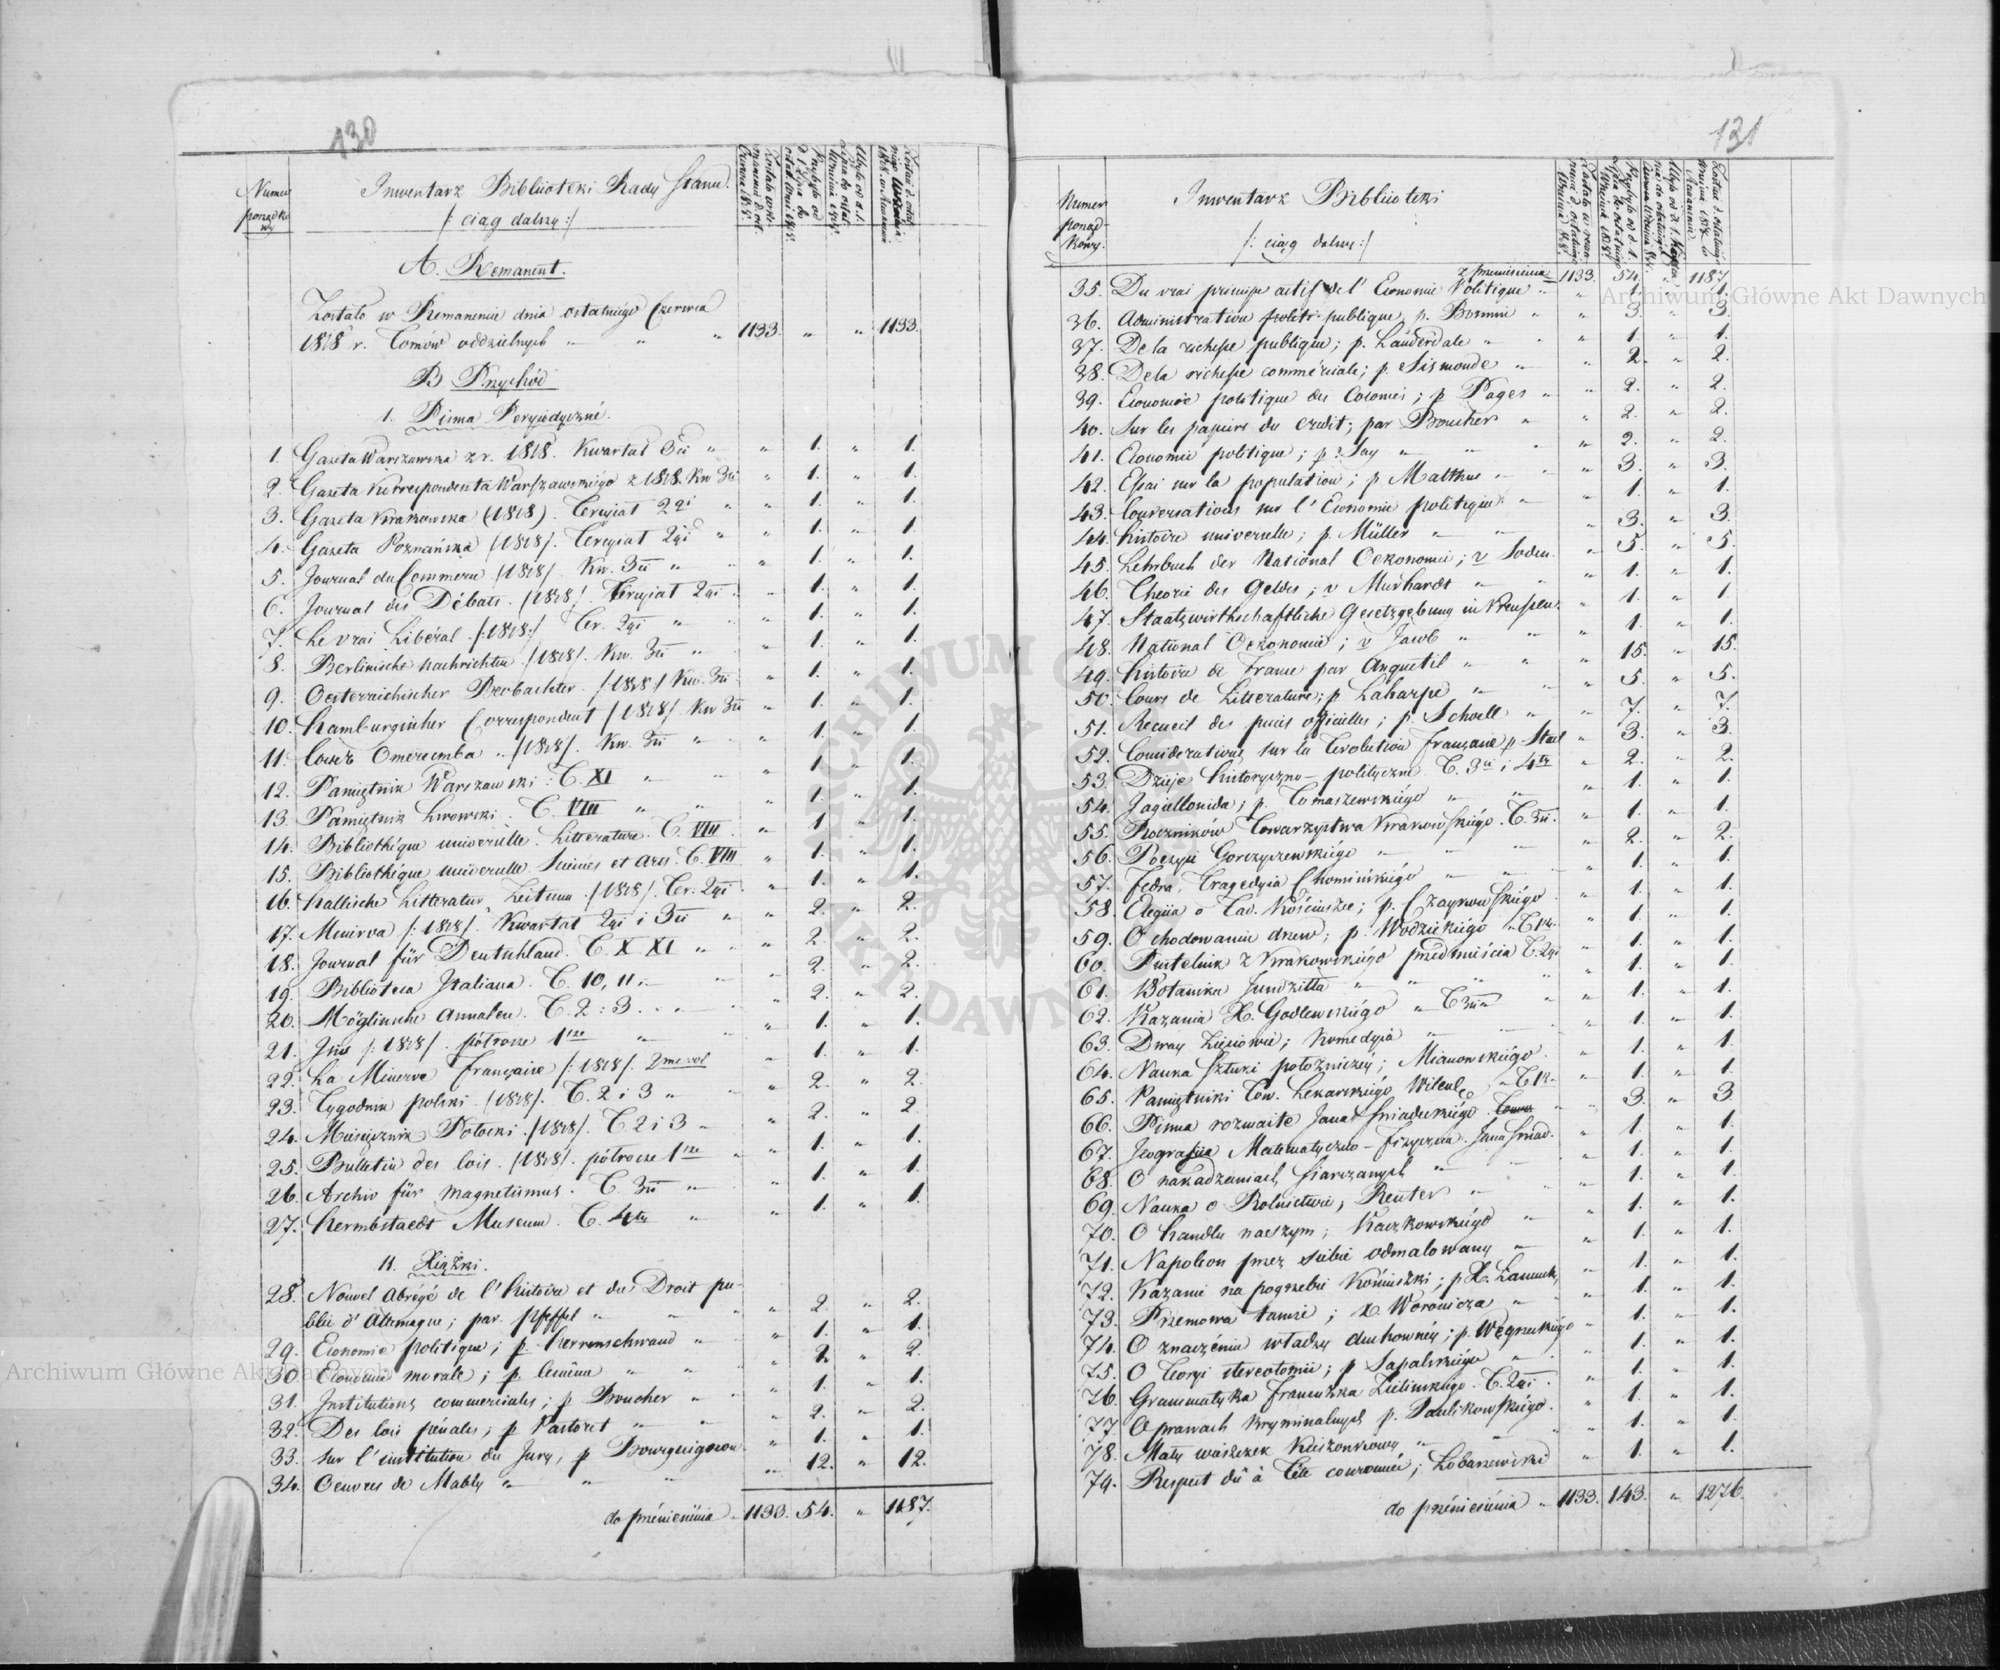 130
Numer porządkowy
Inwentarz Biblioteki Rady Stanu
/: ciąg dalszy :/
A. Remanent.
Zostało w Remanencie dnia ostatniego Czerwca
1818 r. Tomów oddzielnych " " " 1133. " " 1133.
B Przychód
1. Pisma Peryodyczné.
1. Gazeta Warszawska z r. 1818. Kwartał 3ci " " 1. " 1.
2. Gazeta Korrespondenta Warszawskiégo z 1818. Kw 3ci " 1. " 1.
3. Gazeta Krakowska (1818). Tercyiał 2gi " " 1. " 1.
4. Gazeta Poznańska /1818/. Tercyiał 2gi " " 1. " 1.
5. Journal du Commerce /1818/. Kw. 3ci " " 1. " 1.
6. Journal des Débats. /1818/. Tercyiał 2gi " 1. " 1.
7. Le vrai Libéral. /:1818:/ Ter. 2gi " " 1. " 1.
8. Berlinische Nachrichten /1818/. Kw. 3ci " " 1. " 1.
9. Oesterreichischer Beobachter. /1818/ Kw. 3ci " 1. " 1.
10. Hamburgischer Correspondent /1818/. Kw 3ci " 1. " 1.
11. " /1818/. Kw. 3ci " " 1. " 1.
12. Pamiętnik Warszawski. T. XI " " " 1. " 1.
13. Pamiętnik Lwowski. T. VIII " " " 1. " 1.
14. Bibliothéque universelle. Litterature. T. VIII. " 1. " 1.
15. Bibliothéque universelle Sciences et Arts. T. VIII " 1. " 1.
16. Hallische Litteratur Zeitung. /1818/. Ter. 2gi " 1. " 1.
17. Minerva /:1818/. Kwartał 2gi i 3ci " " 2. " 2.
18. Journal für Deutschland. T. X XI " " 2. " 2.
19. Biblioteca Italiana. T. 10, 11. " " 2. " 2.
20. Möglinsche Annalen. T. 2 : 3. " " 2. " 2.
21. /:1818/. półrocze 1sze " " 1. " 1.
22. La Minerve Française /:1818/. 2me vol " 1. " 1.
23. Tygodnik polski /1818/. T. 2 i 3 " " 2. " 2
24. Miesięcznik Połocki. /1818/. T. 2 i 3 " " 2. " 2
25. Bulletin des lois. /1818/. półrocze 1sze " " 1. " 1.
26. Archiv für Magnetismus. T. 3ci " " 1. " 1.
27. Hermbstaedt Museum. T. 4ty " " 1. " 1.
II. Xiążki.
28. Nouvel Abrégé de l'histoire et du Droit pu-
blic d'Allemagne; par Pfeffel " " " 2. " 2.
29. Economie politique; p. Herrenschwand " " 1. " 1.
30. Economie morale; p. " " 2. " 2.
31. Institutions commerciales; p Boucher " " 1. " 1.
32. Des lois pénales; p Pastoret " " " 2. " 2.
33. Sur l'institution du Jury, p Bourguignon " 1. " 1.
34. Oeuvres de Mably " " " " 12. " 12.
do przéniesiénia " 1133. 54. " 1187.
131
Numer porządkowy.
Inwentarz Biblioteki
/: ciąg dalszy :/
z przeniesienia 1133. 54. " 1187.
35. Du vrai principe actif de l'Economie Politique " " 1. " 1.
36. Administration publique, p. Bonnin " " 3. " 3.
37. De la richesse publique; p. Lauderdale " " 1. " 1.
38. De la richesse commérciale; p. Sismonde " " 2. " 2.
39. Economie politique des Colonies; p Pages " " 2. " 2.
40. Sur les papiers du credit; par Boucher " " 2. " 2.
41. Economie politique; p. Say " " " 2. " 2.
42. Essai sur la population; p Malthus " " 3. " 3.
43. Conversations sur l'Economie politique " " 1. " 1.
44. Histoire universelle; p. Müller " " " 3. " 3.
45. Lehrbuch der National Oekonomie; v Soden. " 5. " 5.
46. Theorie des Geldes; v Murhardt " " " 1. " 1.
47. Staatswirthschaftliche Gesetzgebung in Preussen. " 1. " 1.
48. National Oekonomie; v Jacob " " " 1. " 1.
49. Histoire de France par Anquetil " " " 15. " 15.
50. Cours de Litterature; p Laharpe " " " 5. " 5.
51. Recueil des pieces officielles; p. Schoell " " 7. " 7.
52. Considerations sur la Revolution française p Stael " 3. " 3.
53. Dzieje historyczno-polityczne. T. 3ci i 4ty " 2. " 2.
54. Jagiellonida; p. Tomaszewskiégo " " " 1. " 1.
55. Roczników Towarzystwa Krakowskiégo. T. 3ci. " 1. " 1.
56. Poezye Gorczyczewskiégo " " " 2. " 2.
57. Fedra, Tragedyia Chomińskiégo " " " 1. " 1.
58. Elegiia o Tad. Kościuszce; p. Czaykowskiégo. " 1. " 1.
59. O chodowaniu drzew; p. Wodzickiégo " T. 1sz. " 1. " 1.
60. Pustelnik z Krakowskiégo przedmieścia T. 2gi " 1. " 1.
61. Botanika Jundziłła " " " " 1. " 1.
62. Kazania X. Godlewskiégo " T 3ci " " 1. " 1.
63. Dway Zięciowie; Komedyia " " " 1. " 1.
64. Nauka Sztuki położniczéy; Mianowskiégo. " 1. " 1.
65. Pamiętniki Tow. Lekarskiégo Wileńs. " T 1sz. " 1. " 1.
66. Pisma rozmaite Jana Śniadeckiégo. " " 3. " 3
67. Jeografiia Matematyczno-fizyczna. Jana Śniad. " 1. " 1.
68. O nakadzaniach Siarczanych " " " 1. " 1.
69. Nauka o Rolnictwie, Reuter " " " 1. " 1.
70. O handlu naszym; Kaczkowskiégo " " 1. " 1.
71. Napoleon przez siebie odmalowany " " 1. " 1.
72. Kazanie na pogrzebie Kościuszki; p X. Łańcuck. " 1. " 1.
73. Przemowa tamże; X. Woronicza " " " 1. " 1.
74. O znaczéniu władzy duchownéy; p. Węgrzeckiégo " 1. " 1.
75. O Teoryi stereotomii; p Sapalskiégo " " 1. " 1.
76. Grammatyka francuzka Zielińskiégo. T. 2gi. " 1. " 1.
77. O prawach kryminalnych p. Paulikowskiégo. " 1. " 1.
78. Mały wieszczek Kieszonkowy " " " 1. " 1.
79. Respect dû à Tête couronnée; Łobarzewski " 1. " 1.
do przéniesiénia " 1133. 143. " 1276.
Archiwum Główne Akt Dawnych
Archiwum Główne Akt Dawnych
ARCHIWUM GŁÓWNE AKT DAWNYCH